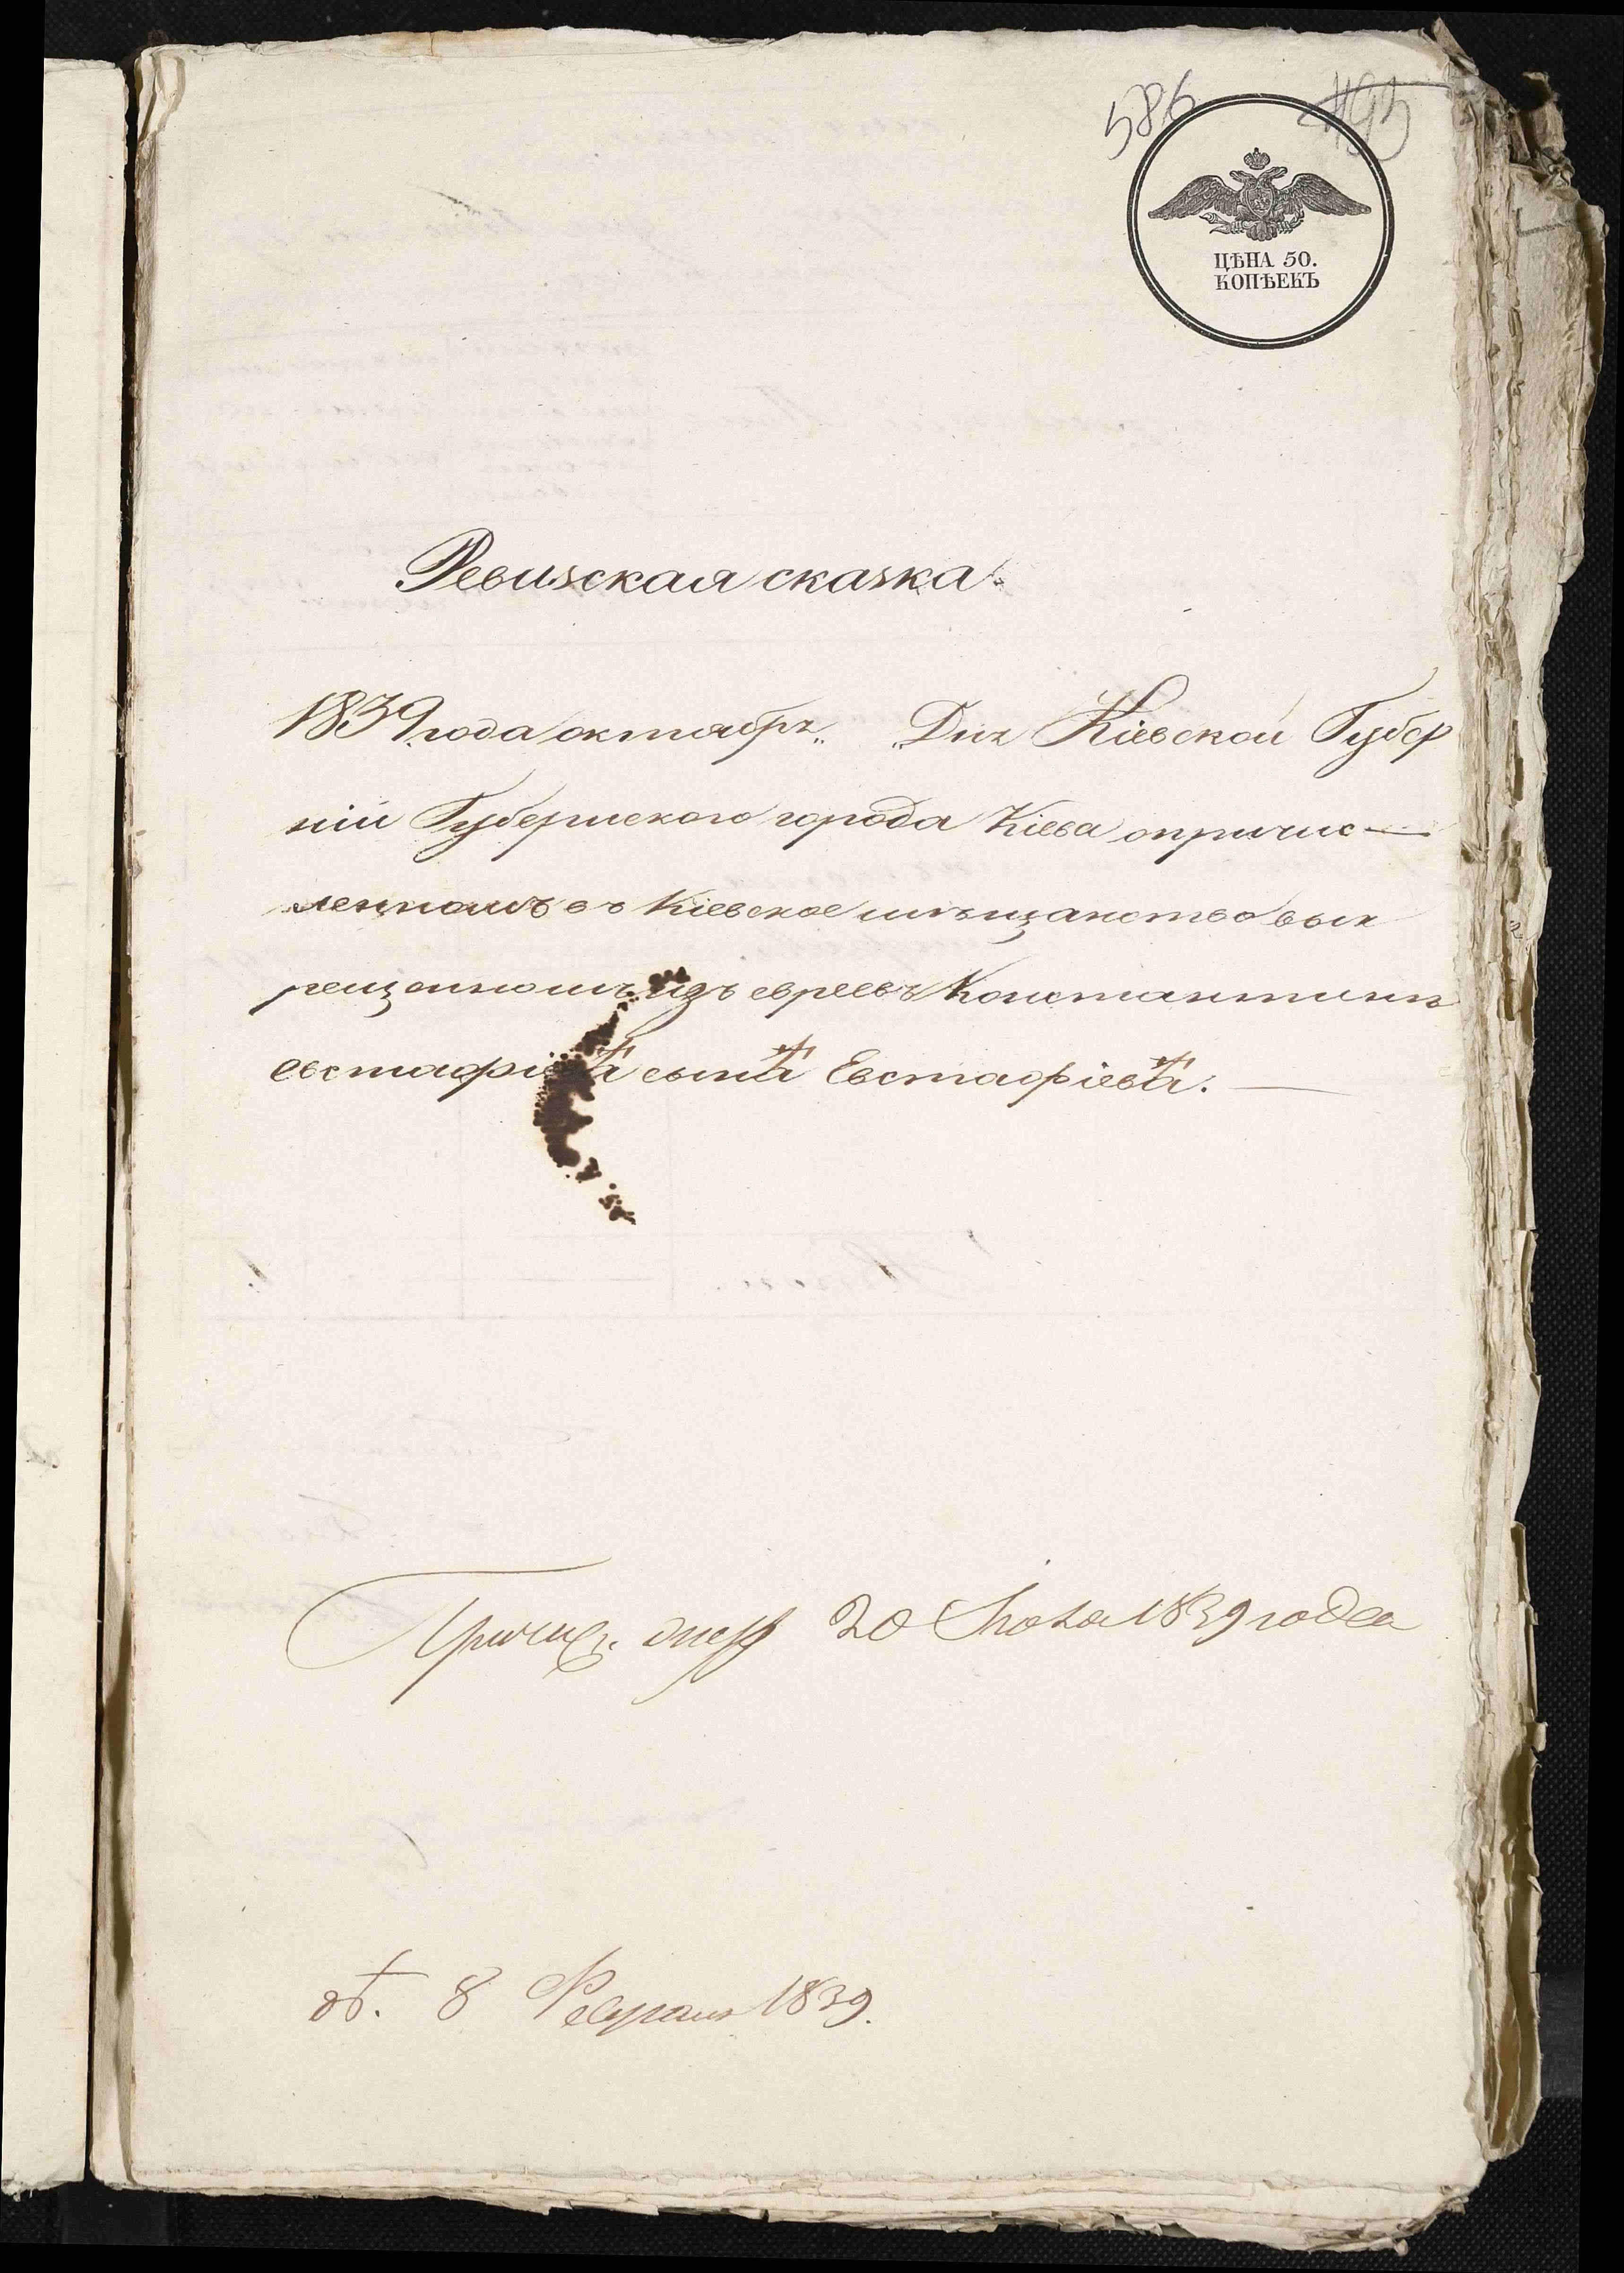 586
ЦѢНА 50.
КОПѢЕКЪ
Ревизская сказка
1839 года октябрь „ „ Дня Кіевской Губер
ніи Губернского города Кіева опричис—
ленномъ въ Кіевское мѣщанство вык
рещенномъ изъ евреевъ Константинѣ
евстафіевѣ сынѣ Евстафіевѣ. —
20 1839 года
об. 8 Февраля 1839.